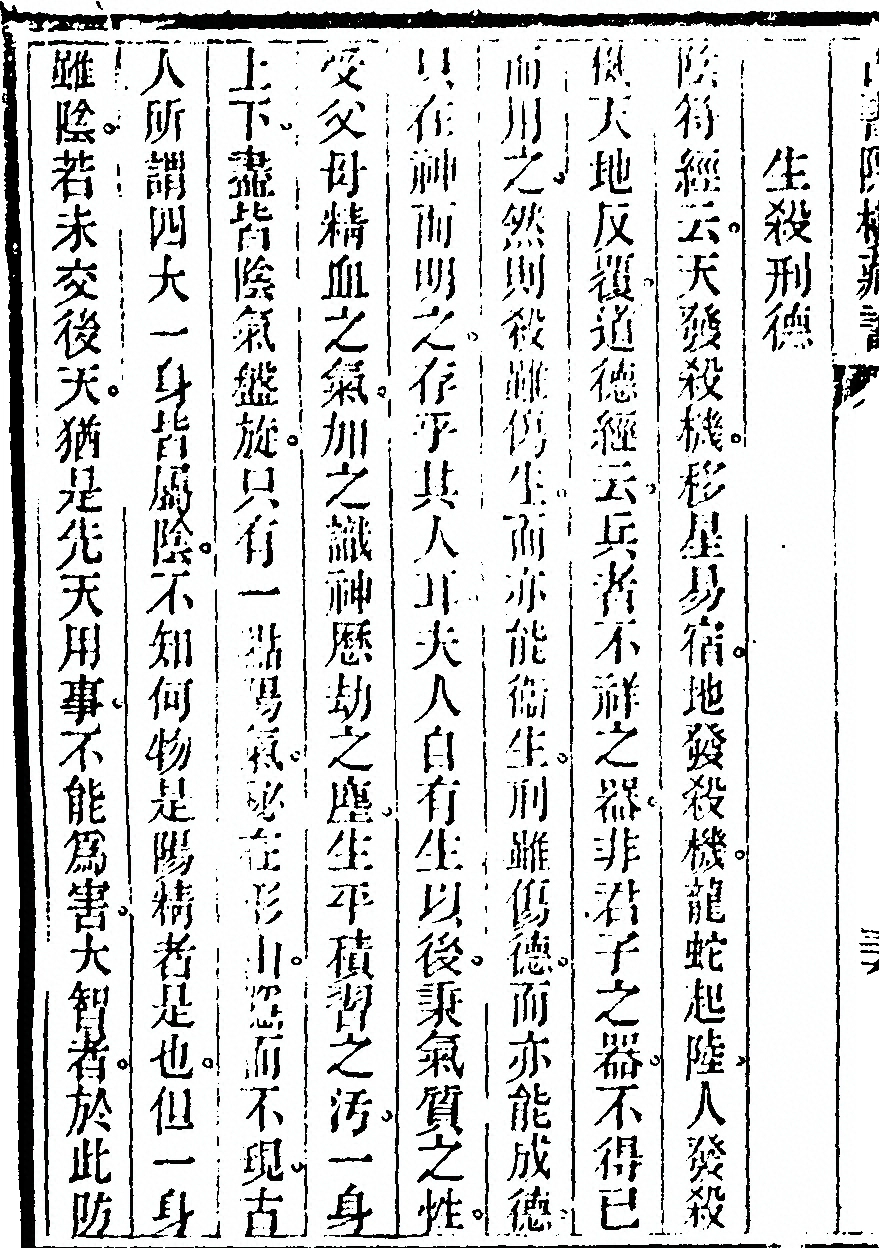 生殺刑德
陰符經云。天發殺機。移星易宿。地發殺機。龍蛇起陸。人發殺
機。天地反覆。道德經云。兵者不祥之器。非君子之器。不得已
而用之。然則殺雖傷生。而亦能衛生。刑雖傷德。而亦能成德。
只在神而明之。存乎其人耳。夫人自有生以後。秉氣質之性。
受父母精血之氣。加之識神歷劫之塵。生平積習之汚。一身
上下。盡皆陰氣盤旋。只有一點陽氣。祕在形山。隱而不現。古
人所謂四大一身皆屬陰。不知何物是陽精者是也。但一身
雖陰。若未交後天。猶是先天用事。不能爲害。大智者。於此防